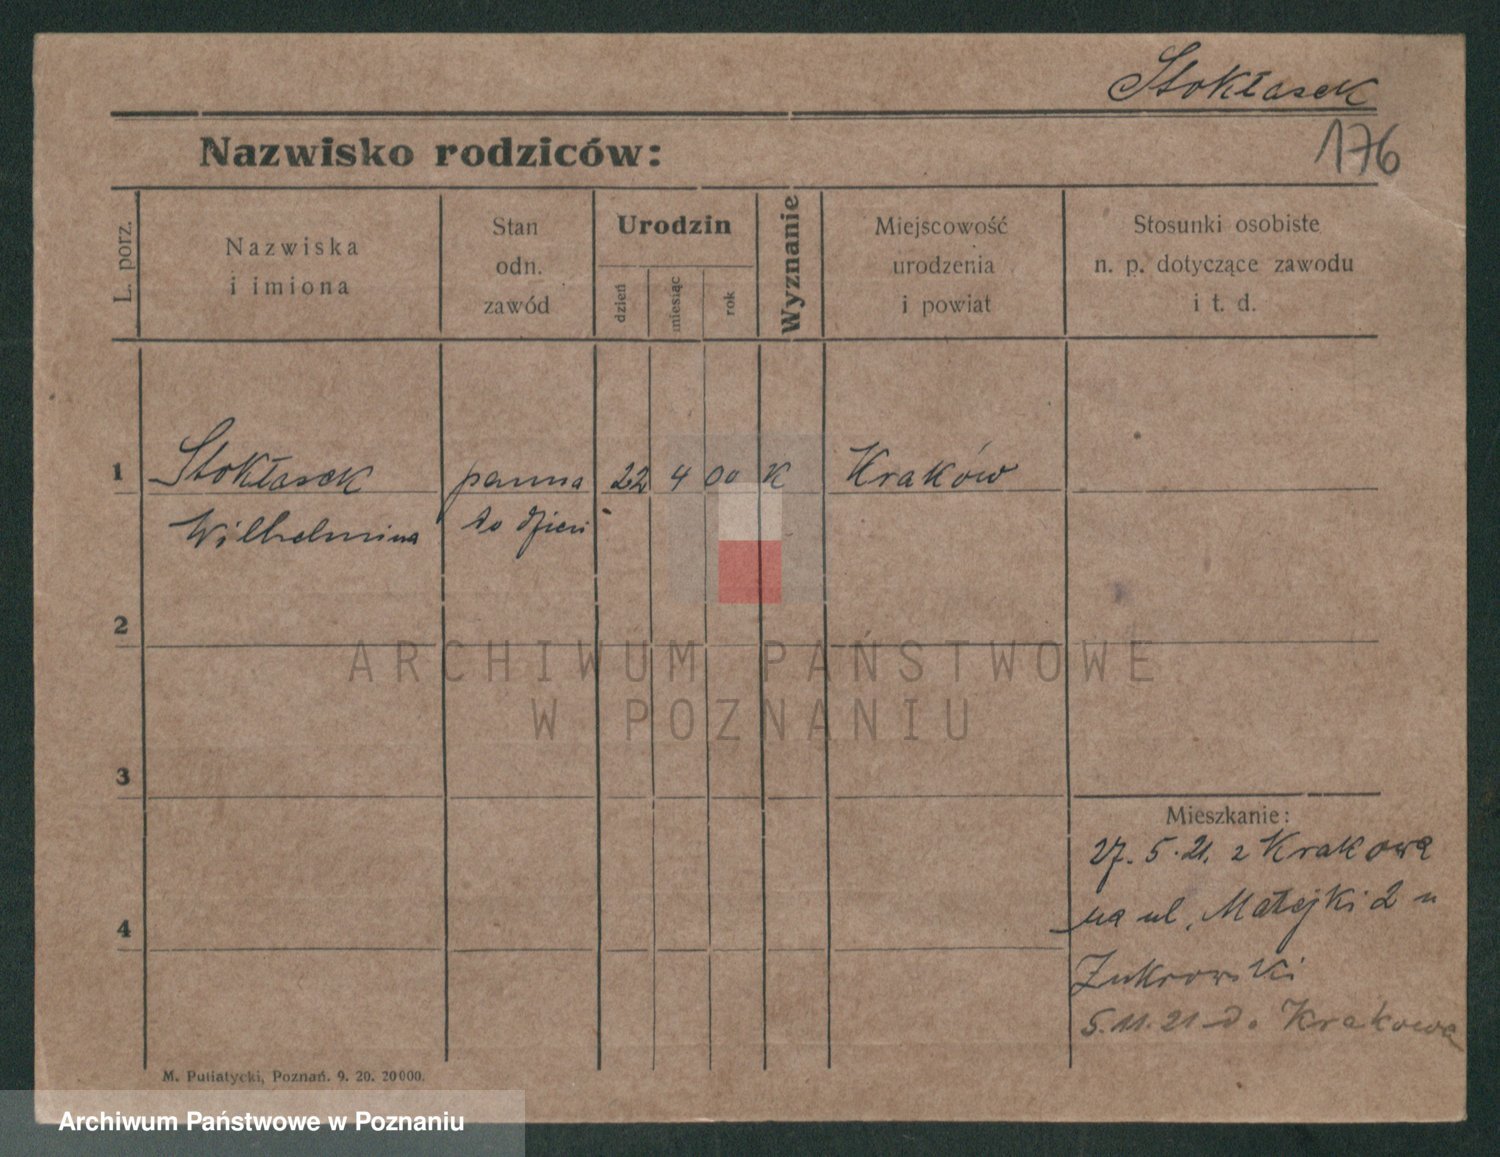 Stokłasek
176
Nazwisko rodziców:
L. porz.
Nazwiska
i imiona
Stan
odn.
zawód
Urodzin
dzień
miesiąc
rok
Wyznanie
Miejscowość
urodzenia
i powiat
Stosunki osobiste
n. p. dotyczące zawodu
i t. d.
1 Stokłasek panna 22 4 00 K Kraków
Wilhelmina
2
3
4
Mieszkanie:
27. 5. 21. z Krakowa
na ul. Matejki 2 u
Zukrowski
5. 11. 21 do Krakowa
M. Putiatycki, Poznań. 9. 20. 20000.
ARCHIWUM PAŃSTWOWE
W POZNANIU
Archiwum Państwowe w Poznaniu